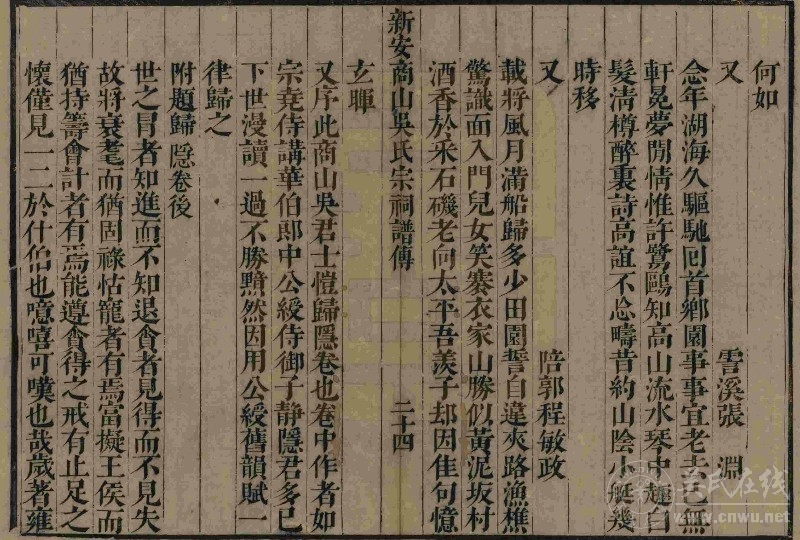 何如
又　　　　　　　雲溪張　淵
念年湖海久驅馳回首鄉園事事宜老去已無
軒冕夢閒情惟許鷺鷗知高山流水琴中趣白
髮清樽醉裏詩高誼不忘疇昔約山陰小艇幾
時移
又　　　　　　　陪郭程敏政
載將風月滿船歸多少田園誓自違夾路漁樵
驚識面入門兒女笑搴衣家山勝似黃泥坂村
酒香於采石磯老向太平吾羨子却因隹句憶
新安商山吳氏宗祠譜傳　二十四
玄暉
又序此商山吳君士愷歸隱卷也卷中作者如
宗堯侍講華伯郎中公綬侍御子靜隱君多已
下世漫讀一過不勝黯然因用公綬舊韻賦一
律歸之
附題歸隱卷後
世之冒者知進而不知退貪者見得而不見失
故將衰耄而猶固祿怙寵者有焉富擬王侯而
猶持籌會計者有焉能遵貪得之戒有止足之
懷僅見一二於什伯也噫嘻可嘆也哉歲著雍
吴氏在线
www.cnwu.net